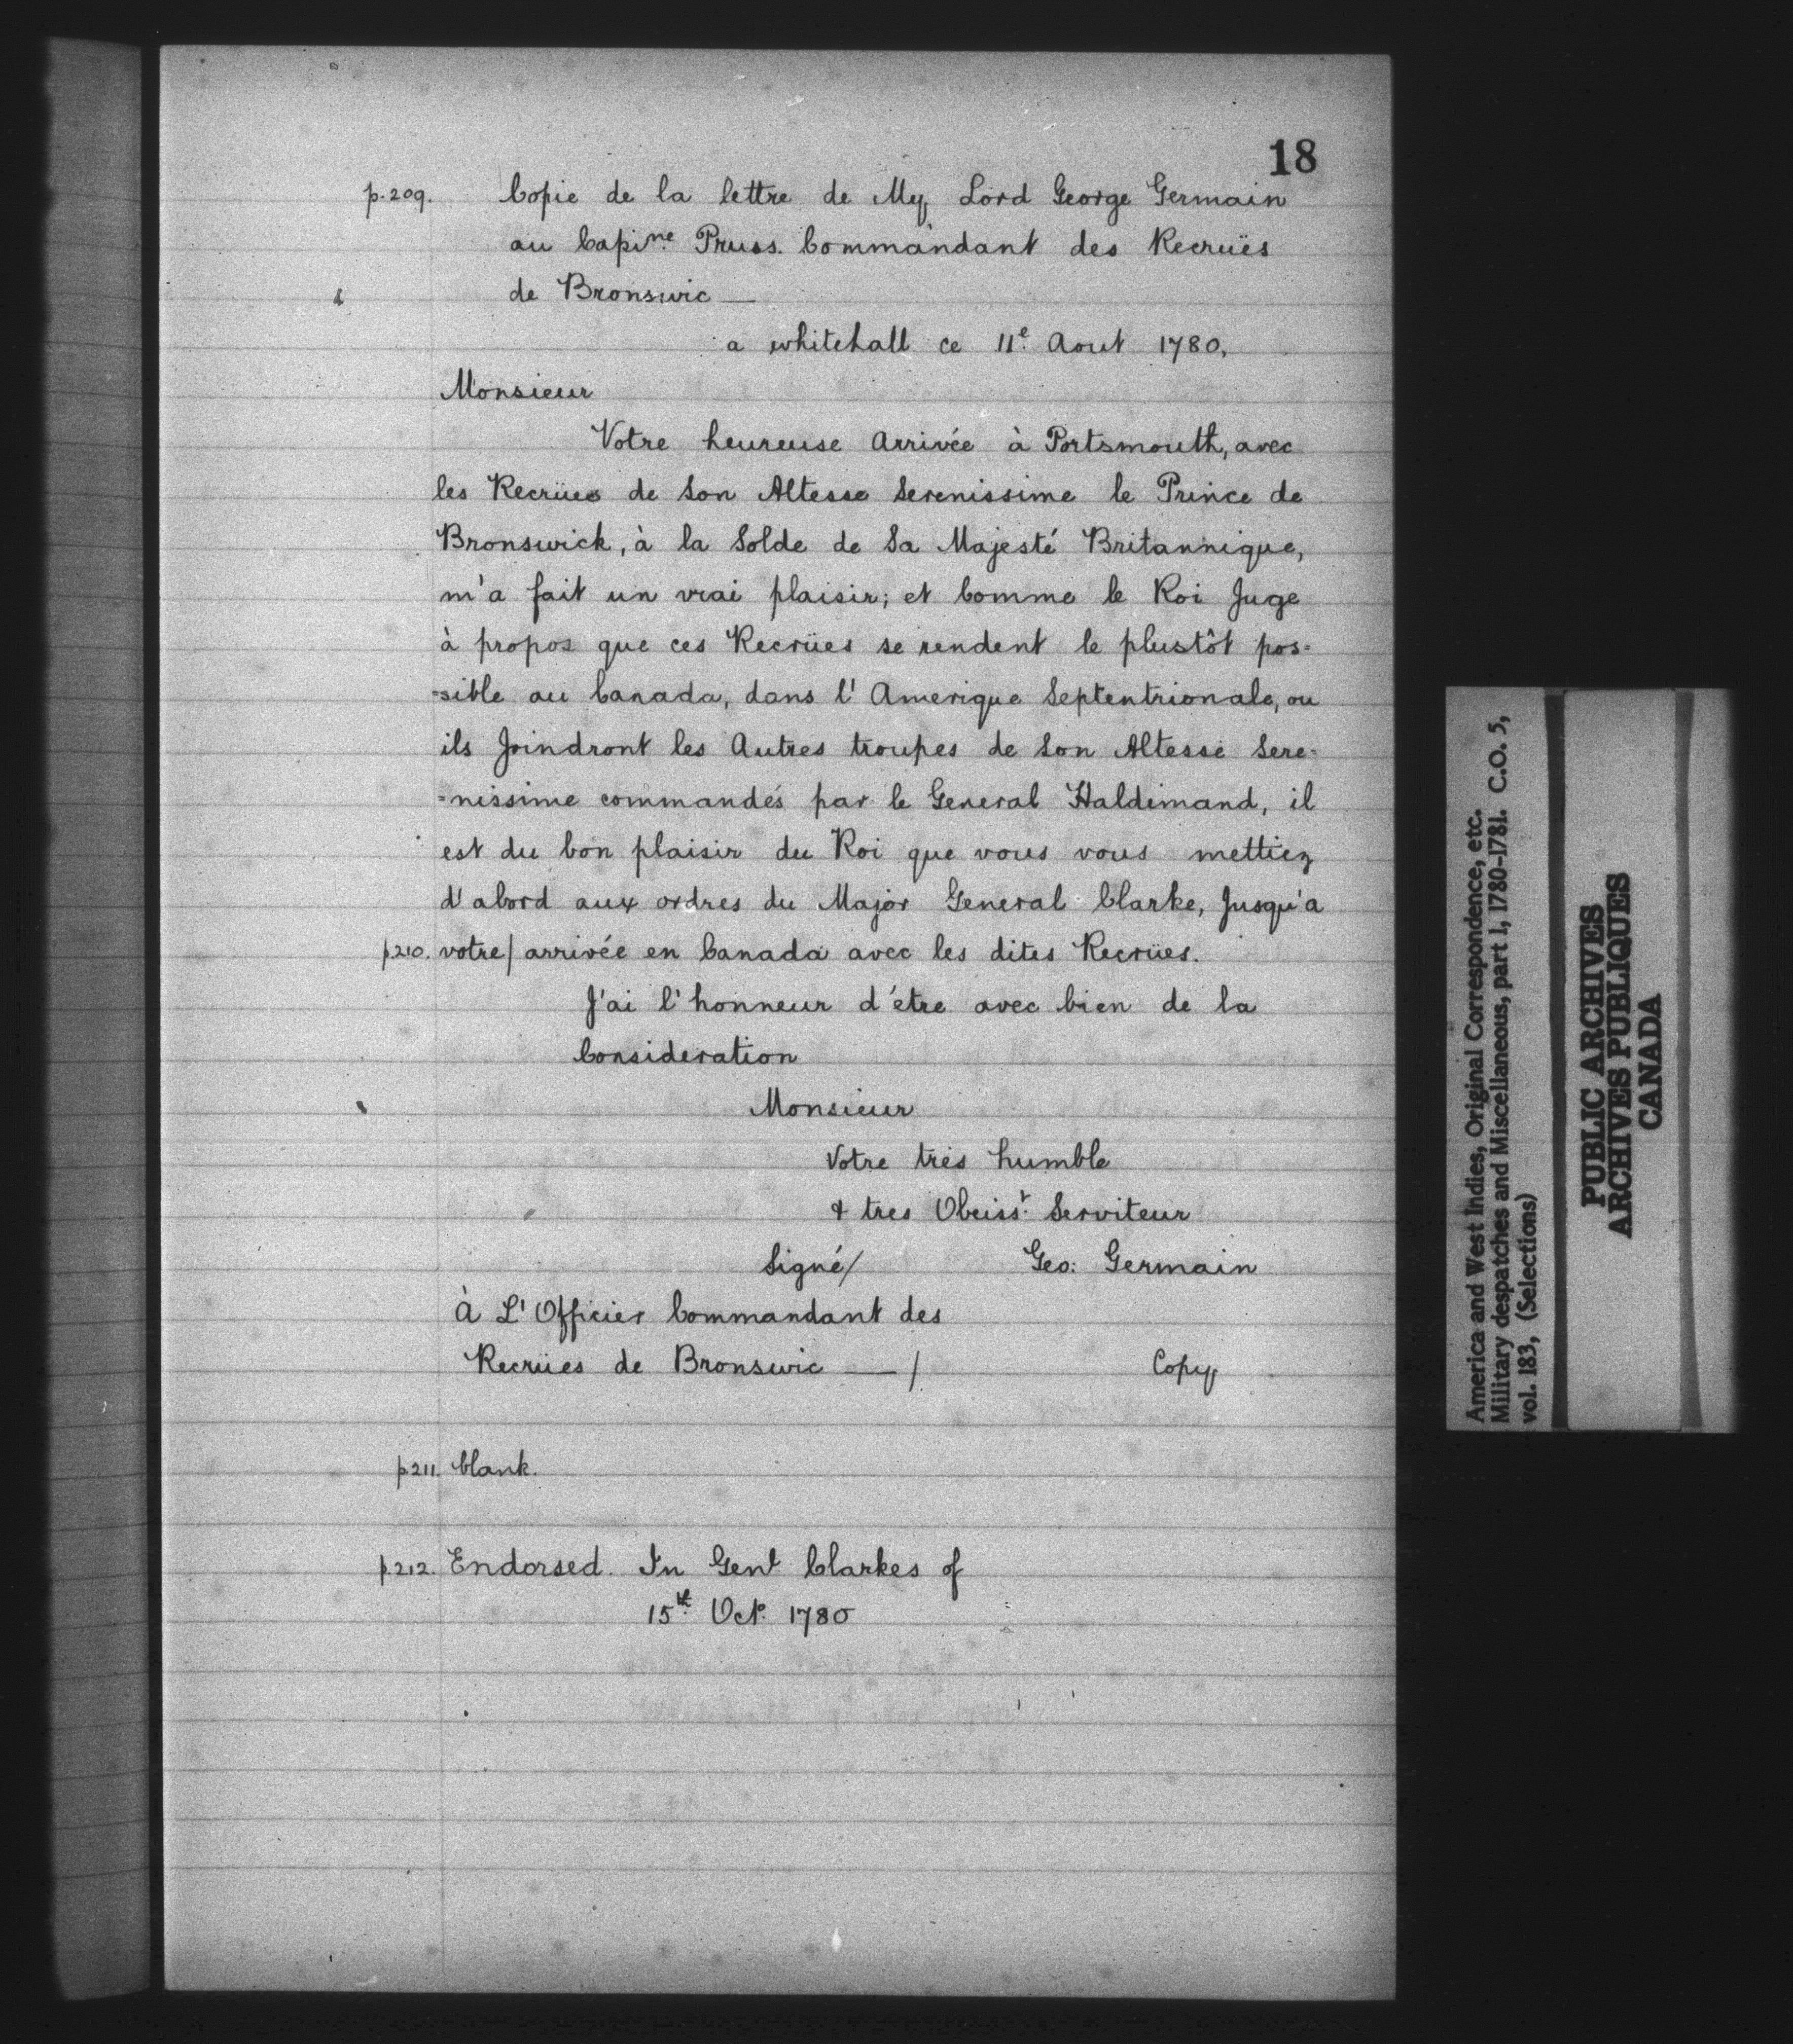 18
p.209. Copie de la lettre de My Lord George Germain
au Capi.ne Pruss. Commandant des Recrües
de Bronswic —
a whitehall ce 11e Aout 1780,
Monsieur
Votre heureuse Arrivée à Portsmouth, avec
les Recrües de Son Altesse Serenissime le Prince de
Bronswick, à la Solde de Sa Majesté Britannique,
m'a fait un vrai plaisir; et Comme le Roi Juge
à propos que ces Recrües se rendent le plustôt pos=
=sible au Canada, dans l'Amerique Septentrionale, ou
ils Joindront les Autres troupes de Son Altesse Sere=
=nissime commandés par le General Haldimand, il
est du bon plaisir du Roi que vous vous mettiez
d'abord aux ordres du Major General Clarke, Jusqu'a
p.210. votre/ arrivée en Canada avec les dites Recrües.
J'ai l'honneur d'étre avec bien de la
Consideration
Monsieur
Votre tres humble
& tres Obeisst Serviteur
Signé/ Geo: Germain
à L'Officier Commandant des
Recrües de Bronswic —/ Copy
p.211. blank.
p.212. Endorsed. In Genl Clarkes of
15th Oct. 1780
America and West Indies, Original Correspondence, etc.
Military despatches and Miscellaneous, part 1, 1780-1781. C.O. 5,
vol. 183, (Selections)
PUBLIC ARCHIVES
ARCHIVES PUBLIQUES
CANADA